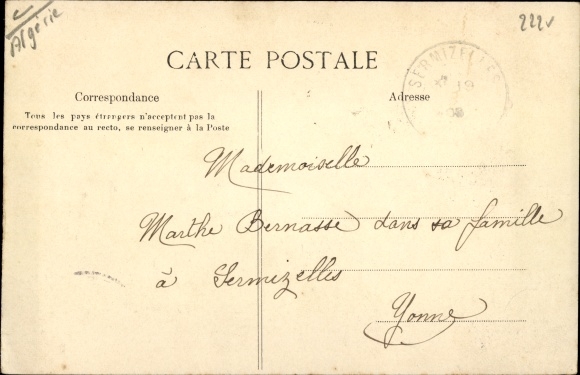 Algérie
222v
CARTE POSTALE
SERMIZELLES
19
08
Correspondance
Adresse
Tous les pays étrangers n'acceptent pas la
correspondance au recto, se renseigner à la Poste
Mademoiselle
Marthe Bernasse dans sa famille
à Sermizelles
Yonne